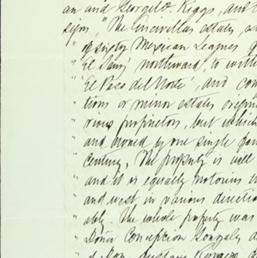 an and George L. Riggs, and
sign, "The Encinillas estate, a
" of sixty Mexican leagues
" El Saus' northward, to with
" El Paso del Norte', and con
" tions or minor estates
" rious proprietors, but which
" and owned by one single
" century. The property is well
" and it is equally notorious
" and west in various directio
" ably. The whole property was
" Doña Concepcion Gonzalez
" d Don